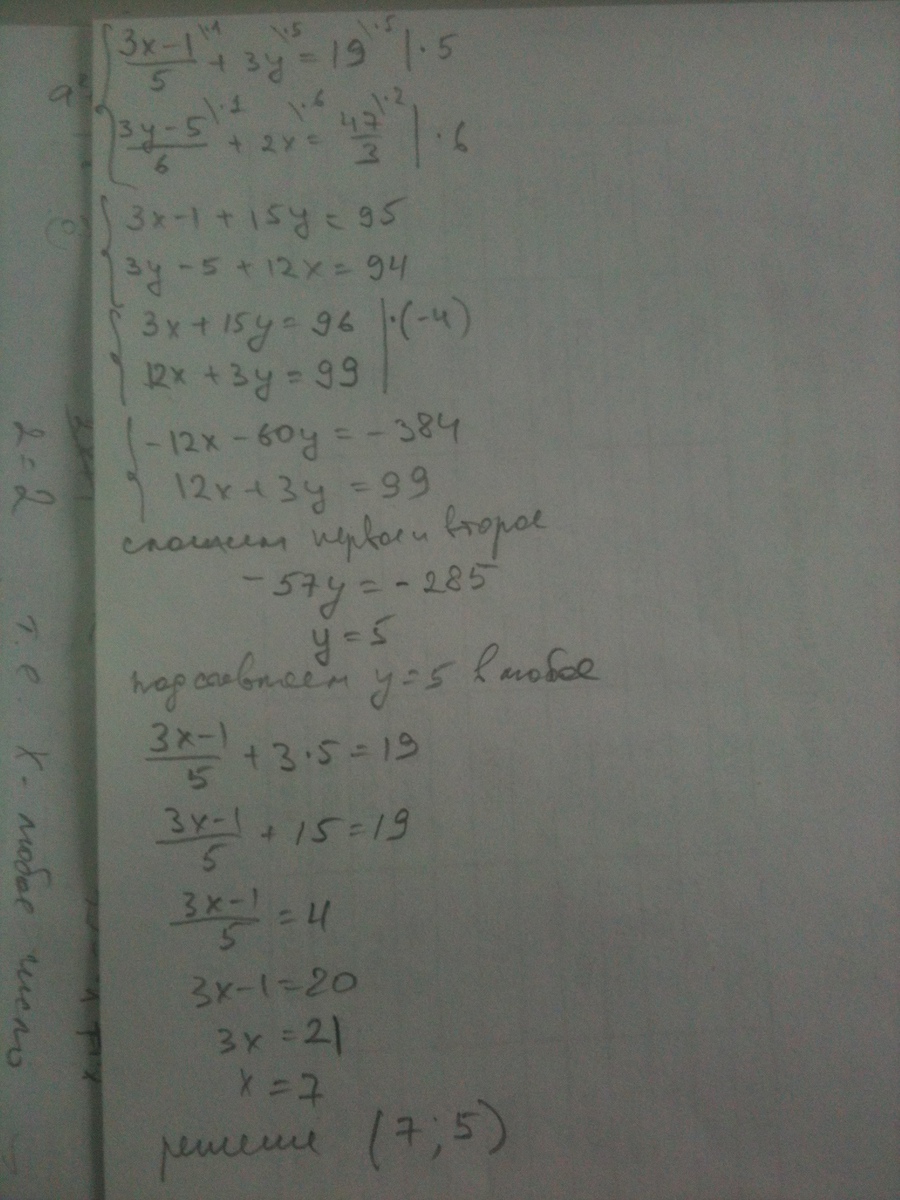 3x-1\·1 / 5 + 3y\·5 = 19\·5 | ·5
3y-5\·1 / 6 + 2x\·6 = 47/3\·2 | ·6
3x-1+15y=95
3y-5+12x=94
3x+15y=96 | ·(-4)
12x+3y=99
-12x-60y=-384
12x+3y=99
сложим первое и второе
-57y=-285
y=5
подставляем y=5 в любое
3x-1/5 + 3·5=19
3x-1/5 + 15=19
3x-1/5 = 4
3x-1=20
3x=21
x=7
решение (7;5)
2=2 т.е. x- любое число